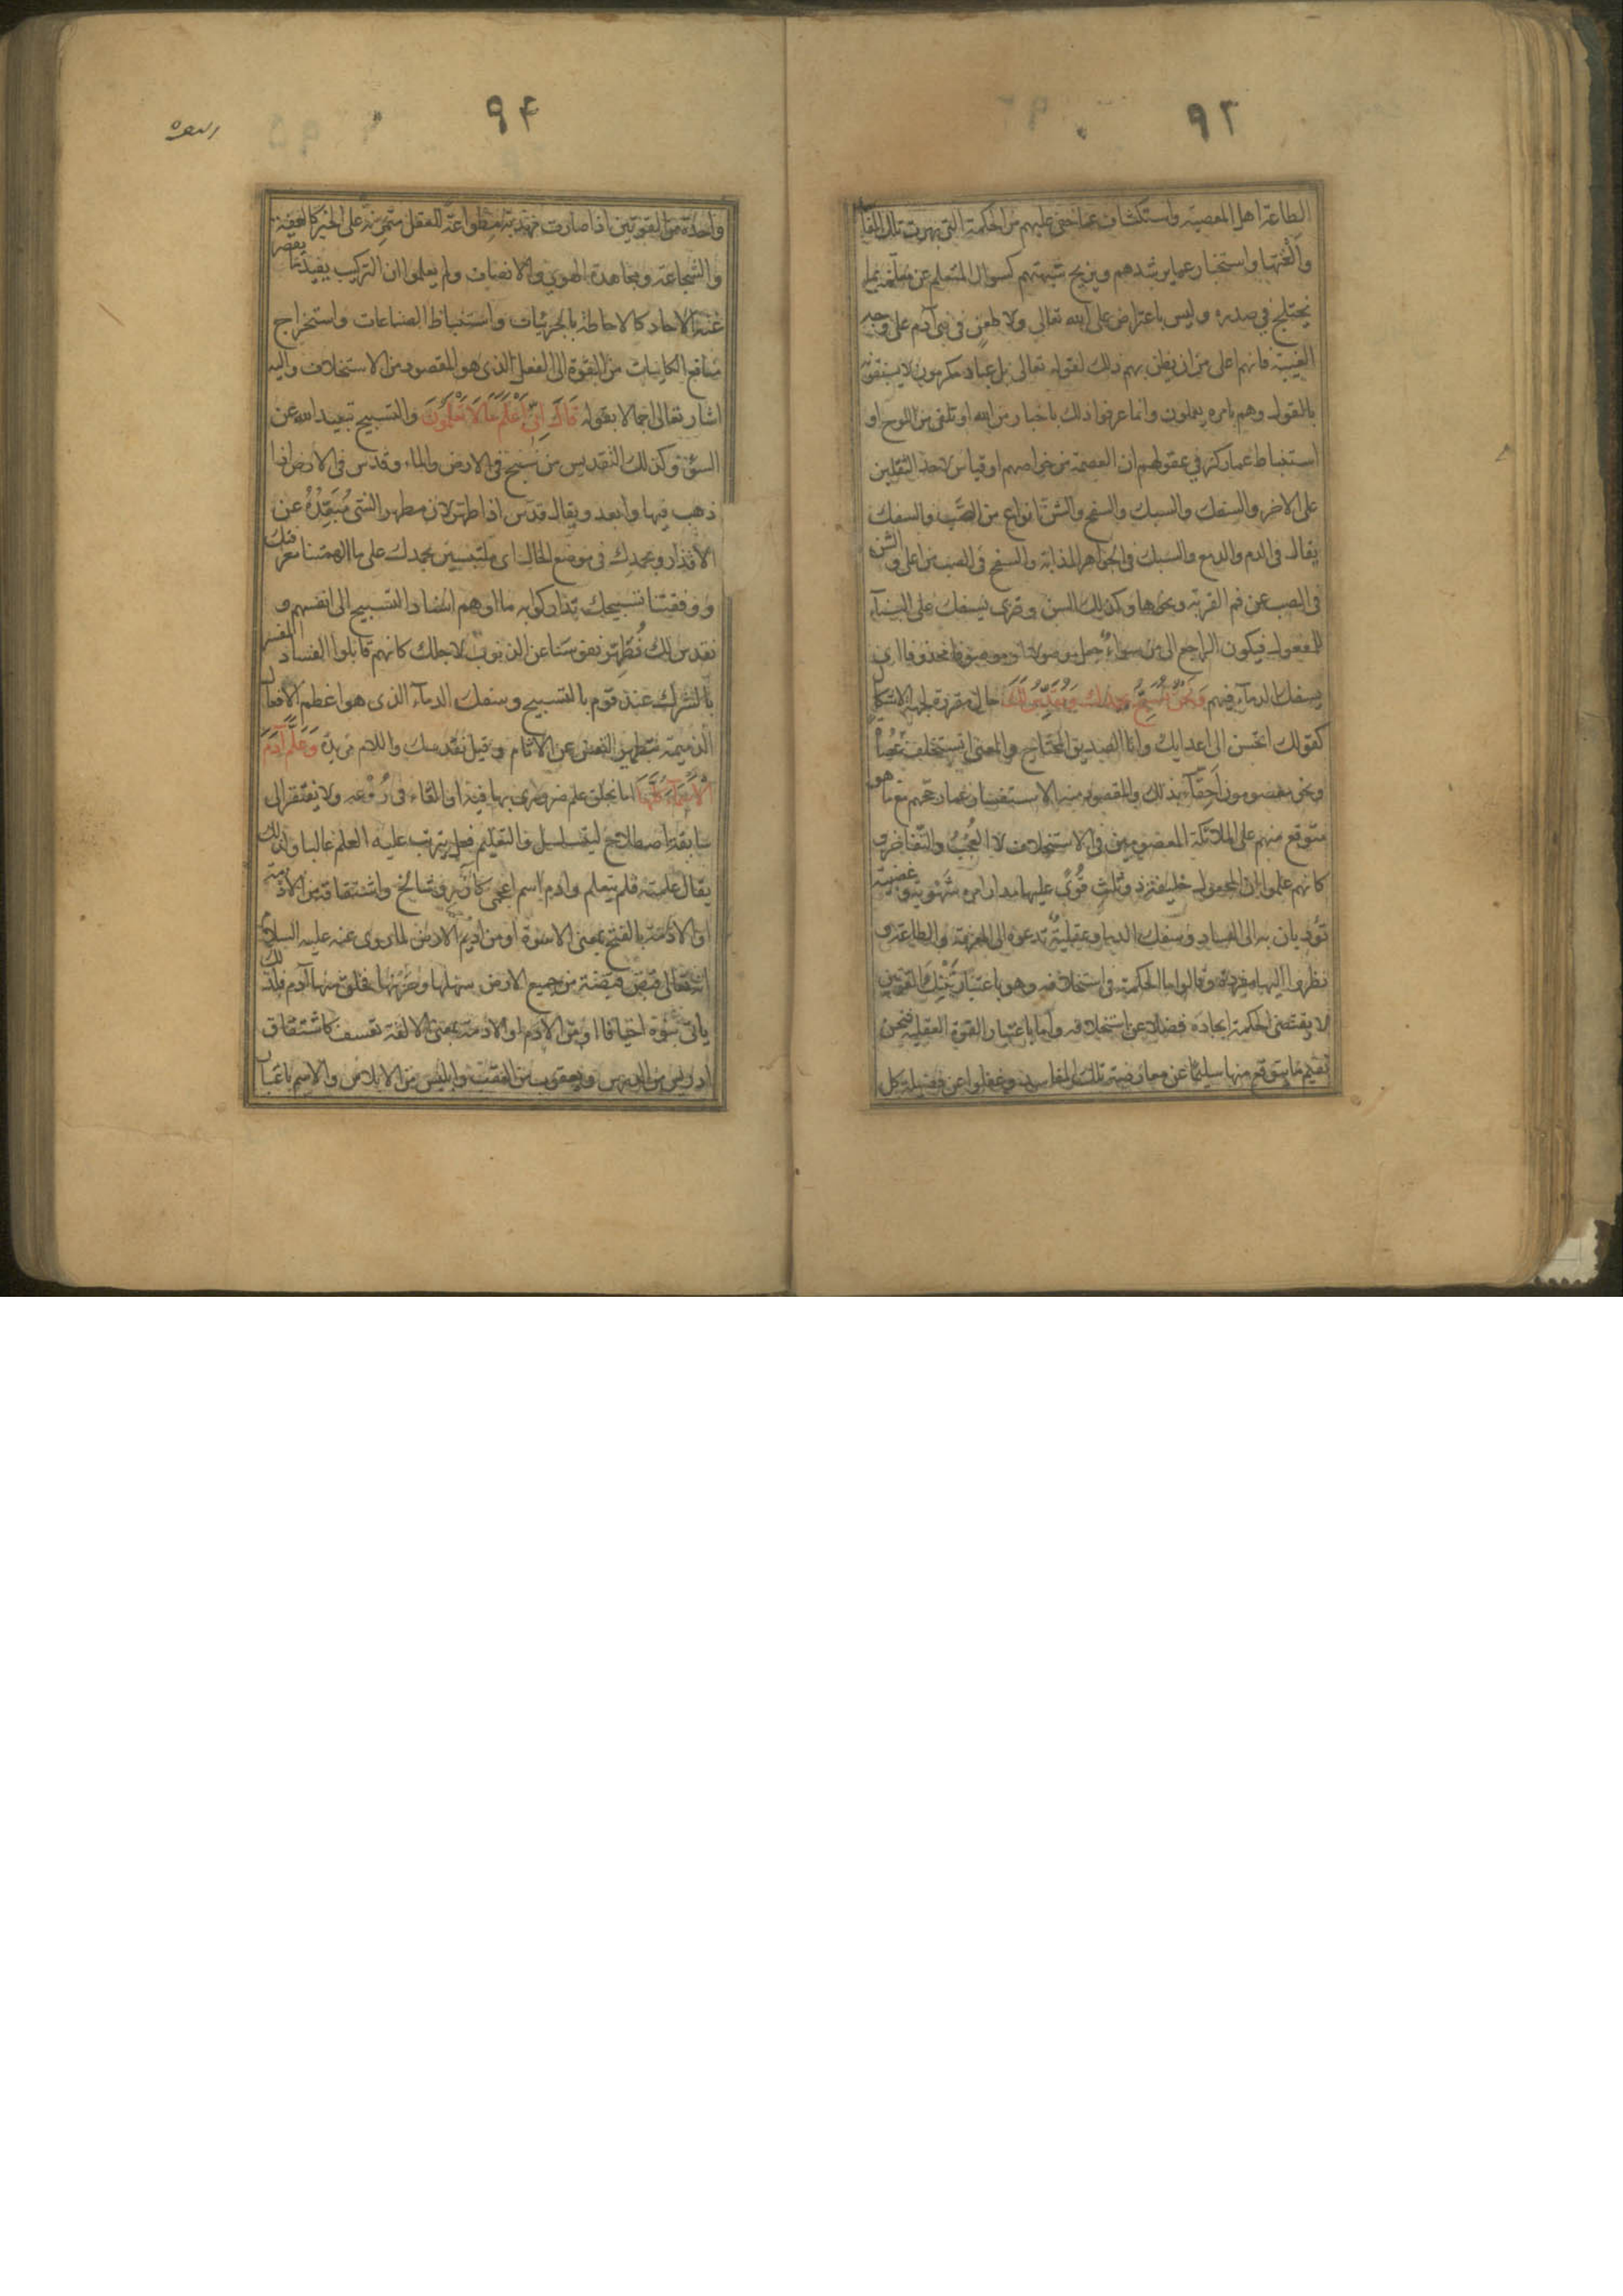 ٩٣
الطاعة اهل المعصية واستكشاف عما خفى عليهم من الحكمة التى بهرت تلك المفا
وألغتها واستخبار عما يرشدهم ويزيح شبهتهم كسوال المتعلم عن معلمه عما
يختلج فى صدره وليس باعتراض على الله تعالى ولا طعن فى بنى آدم على وجه
الغيبة فانهم اعلى من ان يظن بهم ذلك لقوله تعالى بل عباد مكرمون لا يسبقونه
بالقول وهم بامره يعملون وانما عرفوا ذلك باخبار من الله او تلقى من اللوح او
استنباط عما ركز فى عقولهم ان العصمة من خواصهم او قياس لاحد الثقلين
على الاخر والسفك والسبك والسفح والشن انواع من الصب والسفك
يقال فى الدم والدمع والسبك فى الجواهر المذابة والسفح فى الصب من اعلى والشن
فى الصب عن فم القربة ونحوها وكذلك السن وقرئ يسفك على البناء
للمفعول فيكون الراجع الى من سواء جعل موصولا او موصوفا محذوفا اى
يسفك الدماء فيهم وَنَحْنُ نُسَبِّحُ بِحَمْدِكَ وَنُقَدِّسُ لَكَ حال مقررة لجهة الاشكا
كقولك اتحسن الى اعدايك وانا الصديق المحتاج والمعنى اتستخلف عصاة
ونحن معصومون احقاء بذلك والمقصود منه الاستفسار عما رجحهم مع ما هو
متوقع منهم على الملائكة المعصومين فى الاستخلاف لا العجب والتفاخر و
كانهم علموا ان المجعول خليفة ذو ثلث قوى عليها مدار امره شهوية وغضبية
تؤديان به الى الفساد وسفك الدما وعقلية تدعوه الى المعرفة والطاعة و
نظروا اليها مفردة وقالوا ما الحكمة فى استخلافه وهو باعتبار تينك القوتين
لا يقتضى الحكمة ايجاده فضلا عن استخلافه واما باعتبار القوة العقلية فنحن
نقيم ما يتوقع منها سليما عن معارضة تلك المفاسد وغفلوا عن فضيلة كل
٩٤
واحدة من القوتين اذا صارت مهذبة مطواعة للعقل متمرنة على الخير كالعفة
والشجاعة ومجاهدة الهوى والانصاف ولم يعلموا ان التركيب يفيد ما يقصر
عنه الاحاد كالاحاطة بالجزئيات واستنباط الصناعات واستخراج
منافع الكاينات من القوة الى الفعل الذى هو المقصود من الاستخلاف واليه
اشار تعالى اجمالا بقوله قَالَ اِنِّى اَعْلَمُ مَا لَا تَعْلَمُونَ والتسبيح تبعيد الله عن
السوء وكذلك التقديس من سبح فى الارض والماء وقدس فى الارض اذا
ذهب فيها وابعد ويقال قدس اذا طهر لان مطهر الشى مبعده عن
الاقذار وبحمدك فى موضع الحال اى ملتبسين بحمدك على ما الهمتنا معرفتك
ووفقتنا تسبيحك تداركوا به ما اوهم اسناد التسبيح الى انفسهم و
نقدس لك نطهر نفوسنا عن الذنوب لاجلك كانهم قابلوا الفساد المفسر
بالشرك عند قوم بالتسبيح وسفك الدماء الذى هو اعظم الافعال
الذميمة بتطهير النفس عن الاثام وقيل نقدسك واللام مزيدة وَعَلَّمَ آدَمَ
الْاَسْمَآءَ كُلَّهَا اما بخلق علم ضرورى بها فيه او القاء فى روعه ولا يفتقر الى
سابقة اصطلاح ليتسلسل والتعليم فعل يترتب عليه العلم غالبا ولذلك
يقال علمته فلم يتعلم وادم اسم اعجمى كآزر وشالخ واشتقاقه من الادمة
او الادمة بالفتح بمعنى الاسوة او من اديم الارض لما روى عنه عليه السلام
انه تعالى قبض قبضة من جميع الارض سهلها وحزنها فخلق منها آدم فلذلك
ياتى بنوه اخيافا او من الادم او الادمة بمعنى الالفة تعسف كاشتقاق
ادريس من الدرس ويعقوب من العقب وابليس من الابلاس والاسم باعتبار